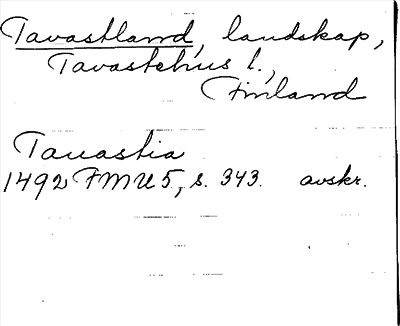 Tavastland, landskap,
Tavastehus l.,
Finland
Tauastia
1492 FMU 5, s. 343. avskr.